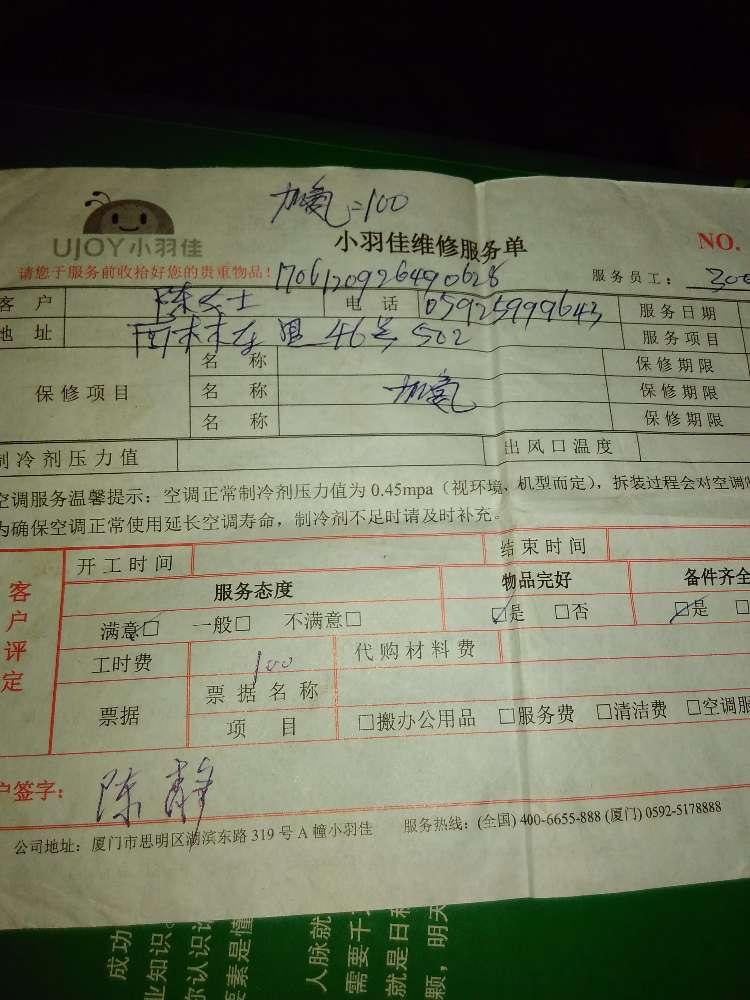 加氨=100
UJOY小羽佳
小羽佳维修服务单
NO.
请您于服务前收拾好您的贵重物品!
1706120926490628
服务员工: 300
客 户 陈女士 电 话 05925999643 服务日期
地 址 46号502 服务项目
保修项目
名 称 保修期限
名 称 加氨 保修期限
名 称 保修期限
制冷剂压力值 出风口温度
空调服务温馨提示: 空调正常制冷剂压力值为 0.45mpa (视环境、机型而定), 拆装过程会对空调
为确保空调正常使用延长空调寿命, 制冷剂不足时请及时补充。
客户评定
开工时间 结束时间
服务态度 物品完好 备件齐全
满意□ 一般□ 不满意□ □是 □否 □是 □
工时费 100 代购材料费
票据
票据名称
项 目 □搬办公用品 □服务费 □清洁费 □空调服
户签字: 陈静
公司地址: 厦门市思明区湖滨东路 319 号 A 幢小羽佳 服务热线: (全国) 400-6655-888 (厦门) 0592-5178888
成功
业知识。
你认识
要素是懂
人脉就
需要千
就是日积
颗, 明天